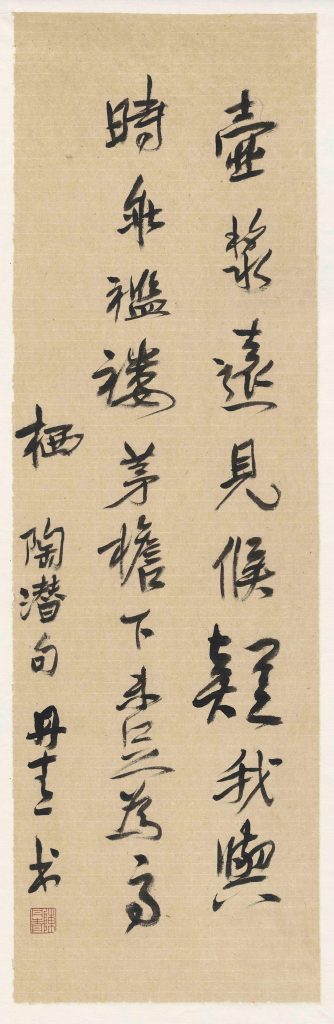 壺漿遠見候疑我與
時乖襤褸茅檐下未足為高
栖 陶潜句 丹青书